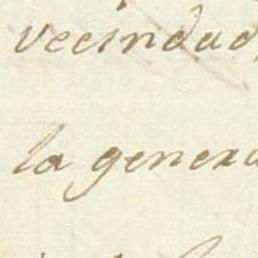 vecindad,
la genera